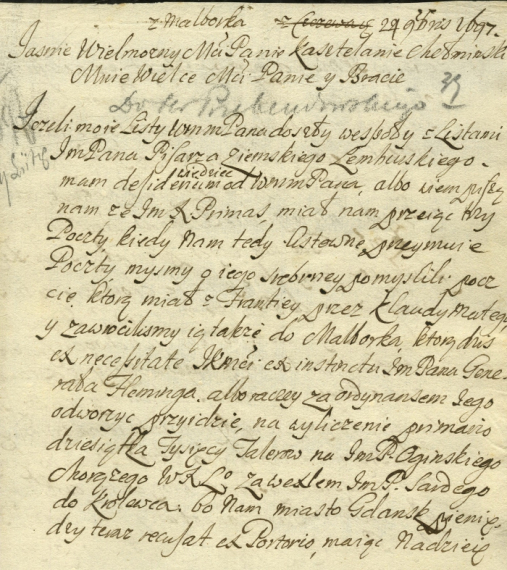 z Malborka 29 9bris 1697.
Jasnie Wielmozny Mći Panie Kasztelanie Chełminski
Mnie Wielce Mći Panie y Bracie
Do Przebendowskiego
Jezeli moie Listy WmmPana doszły wespoły z Listami
ImPana Pisarza Ziemskiego
mam desiderium wiedziec od WmmPana, albowiem piszą
nam ze Im X Primas, miał nam przeiąc trzy
Poczty, kiedy Nam tedy Listowne przeymuie
Poczty mysmy o iego srebrney pomyslili pocz
cie, ktorą miał z Francyey przez
y zawrocilismy ią takze do Malborka, ktorą dzis
ex necessitate IKMći ex instinctu ImPana Gene-
rała Fleminga, albo raczey za ordynansem Iego
odworzyc przyidzie, na wyliczenie primario
dziesiątka Tysięcy Talerow na ImP. Oginskiego
Chorązego W X Lo za wexlem ImP.
do Krolewca. bo Nam miasto Gdansk pienię,
dzy teraz recusat ex Portorio, maiąc Nadzieię